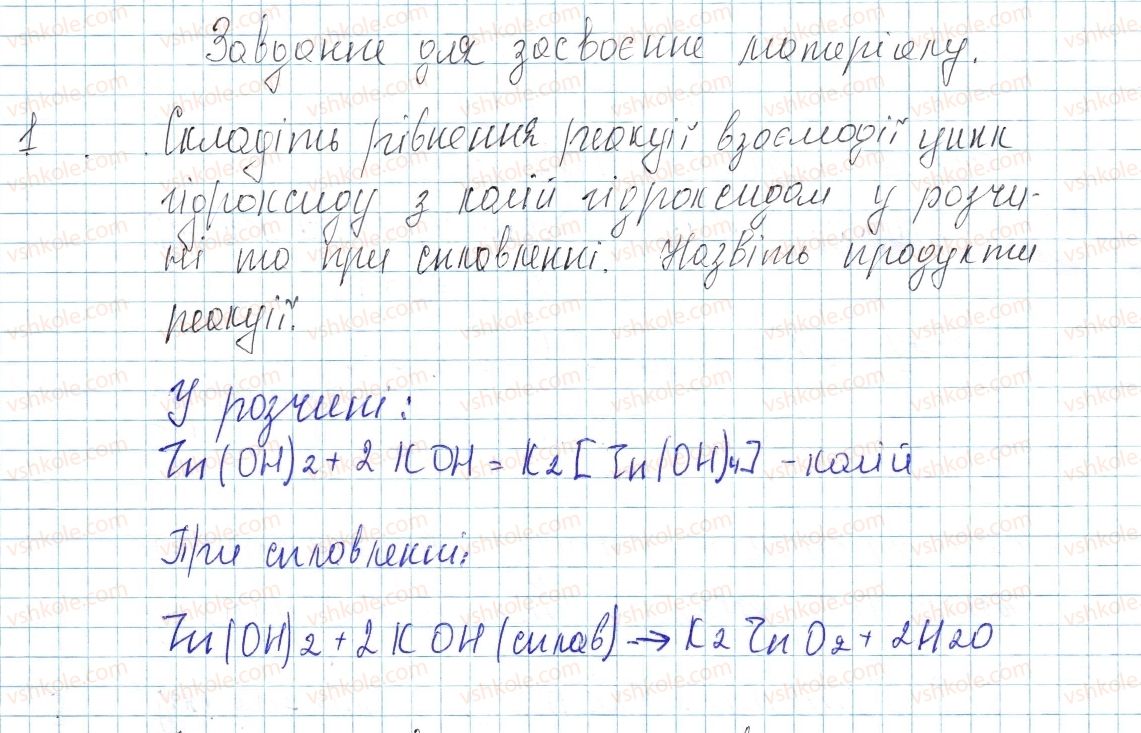 Завдання для засвоєння матеріалу.
1. Складіть рівняння реакції взаємодії цинк
гідроксиду з калій гідроксидом у розчи-
ні та при сплавленні. Назвіть продукти
реакції.
У розчині:
Zn(OH)2 + 2KOH = K2[Zn(OH)4] - калій
При сплавленні:
Zn(OH)2 + 2KOH (сплав) → K2ZnO2 + 2H2O
vshkole.com